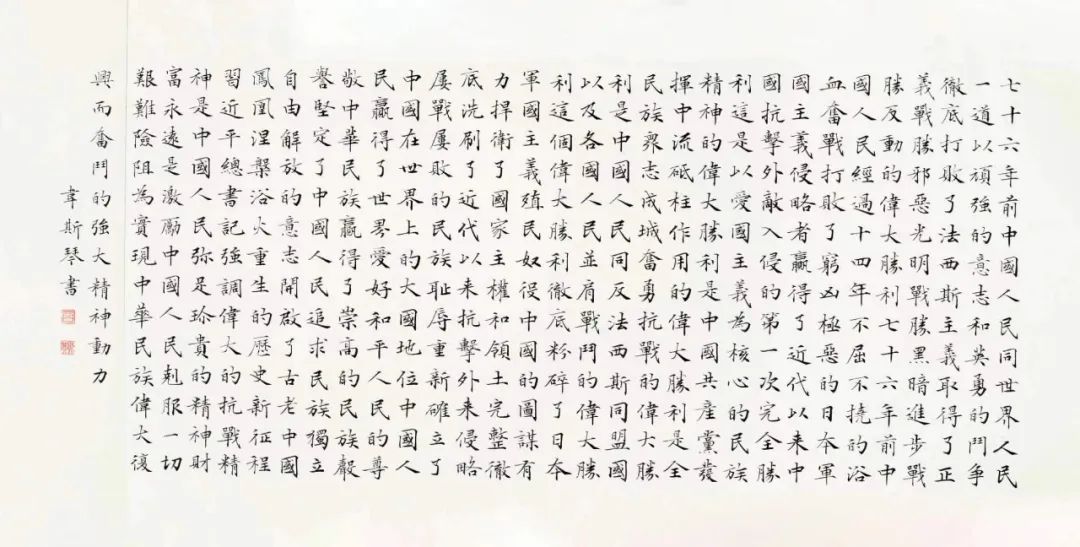 七十六年前中國人民同世界人民
一道以頑強的意志和英勇的鬥爭
徹底打敗了法西斯主義取得了正
義戰勝邪惡光明戰勝黑暗進步戰
勝反動的偉大勝利七十六年前中
國人民經過十四年不屈不撓的浴
血奮戰打敗了窮凶極惡的日本軍
國主義侵略者贏得了近代以來中
國抗擊外敵入侵的第一次完全勝
利這是以愛國主義為核心的民族
精神的偉大勝利是中國共産黨發
揮中流砥柱作用的偉大勝利是全
民族衆志成城奮勇抗戰的偉大勝
利是中國人民同反法西斯同盟國
以及各國人民並肩戰鬥的偉大勝
利這個偉大勝利徹底粉碎了日本
軍國主義殖民奴役中國的圖謀有
力捍衛了國家主權和領土完整徹
底洗刷了近代以來抗擊外來侵略
屢戰屢敗的民族恥辱重新確立了
中國在世界上的大國地位中國人
民贏得了世界愛好和平人民的尊
敬中華民族贏得了崇高的民族聲
譽堅定了中國人民追求民族獨立
自由解放的意志開啟了古老中國
鳳凰涅槃浴火重生的歷史新征程
習近平總書記強調偉大的抗戰精
神是中國人民弥足珍貴的精神財
富永遠是激勵中國人民剋服一切
艱難險阻為實現中華民族偉大復
興而奮鬥的強大精神動力
韋斯琴書